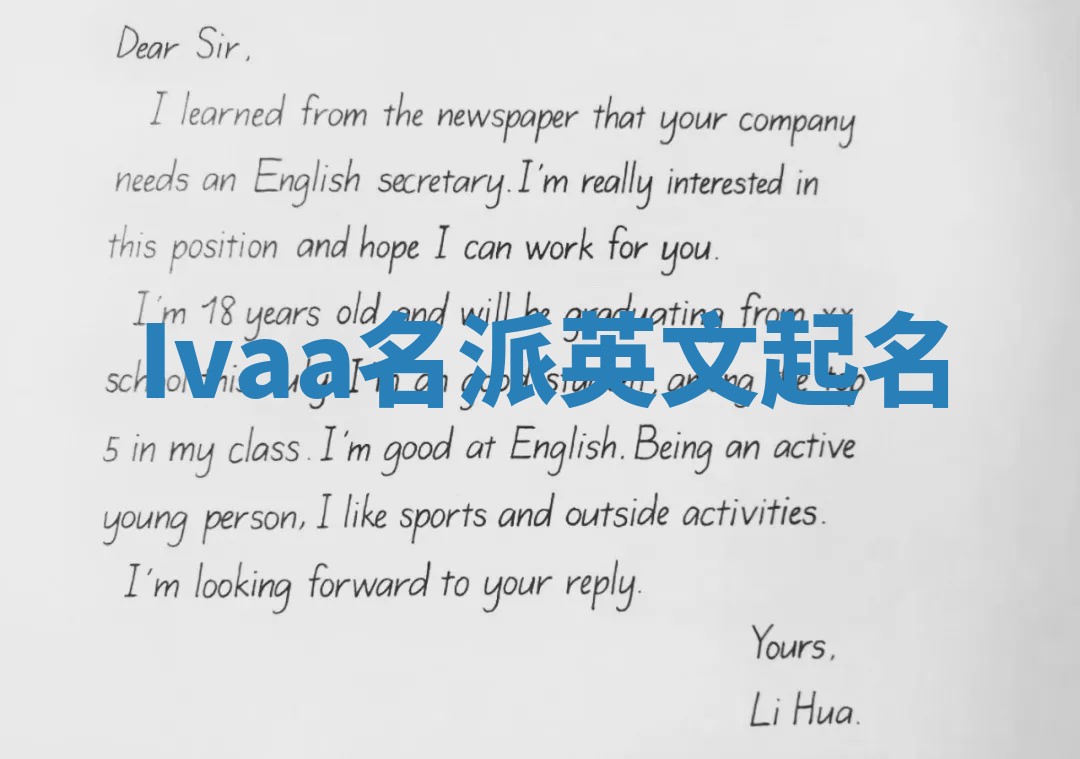 Dear Sir,
I learned from the newspaper that your company
needs an English secretary. I'm really interested in
this position and hope I can work for you.
I'm 18 years old and will be graduating from xx
Ivaa名派英文起名
school this July. I'm an good student, among the top
5 in my class. I'm good at English. Being an active
young person, I like sports and outside activities.
I'm looking forward to your reply.
Yours,
Li Hua.